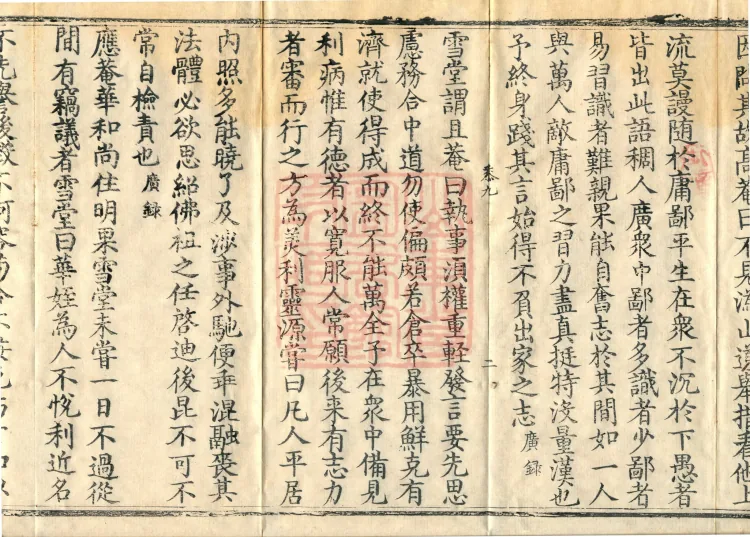 因問其故高菴曰不見溈山道舉措看他上
流莫謾隨於庸鄙平生在衆不沉於下愚者
皆出此語稠人廣衆中鄙者多識者少鄙者
易習識者難親果能自奮志於其間如一人
與萬人敵庸鄙之習力盡真挺特沒量漢也
予終身踐其言始得不負出家之志 廣録
卷九 二
雪堂謂且菴曰執事須權重輕發言要先思
慮務合中道勿使偏頗若倉卒暴用鮮克有
濟就使得成而終不能萬全予在衆中備見
利病惟有德者以寛服人常願後来有志力
者審而行之方為美利靈源甞曰凡人平居
內照多能曉了及涉事外馳便乖混融喪其
法體必欲思紹佛祖之任啓迪後昆不可不
常自檢責也 廣録
應菴華和尚住明果雪堂未嘗一日不過從
間有竊議者雪堂曰華姪為人不悅利近名